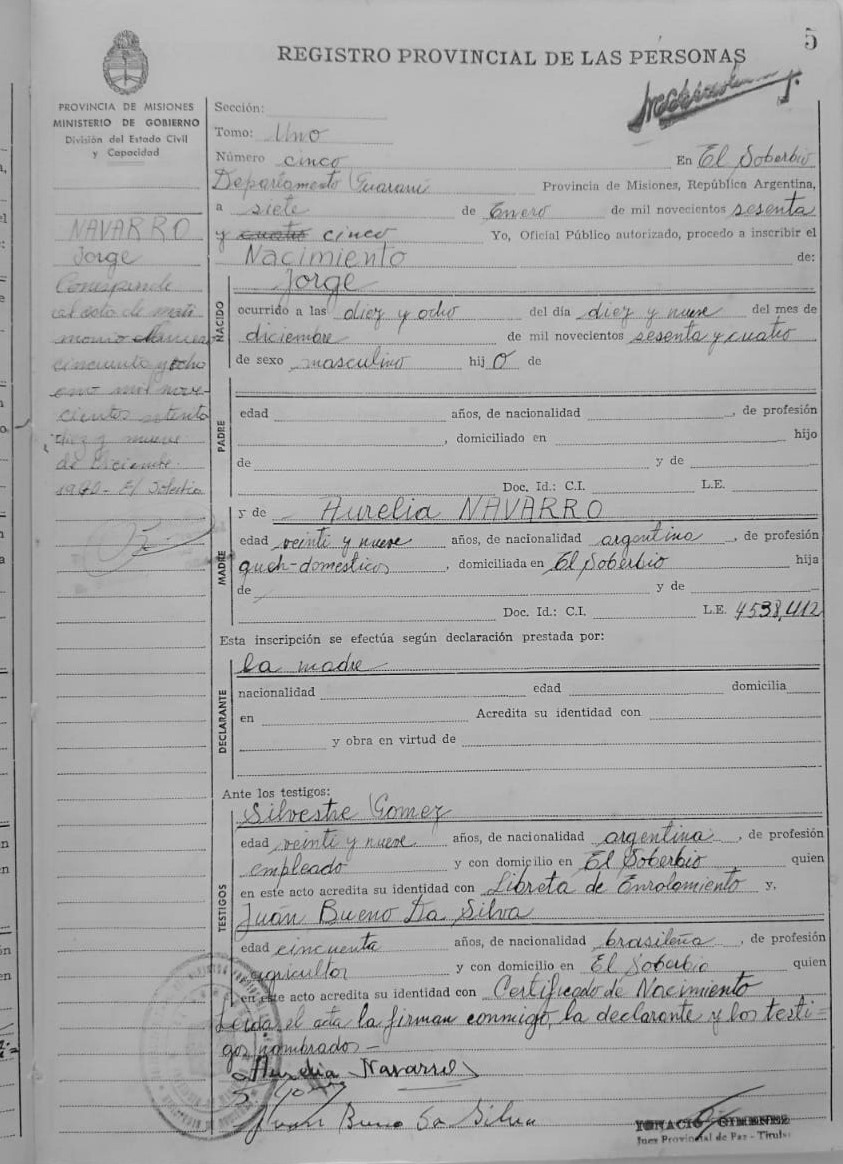 5
REGISTRO PROVINCIAL DE LAS PERSONAS
PROVINCIA DE MISIONES
MINISTERIO DE GOBIERNO
División del Estado Civil
y Capacidad
NAVARRO
Jorge
Corresponde
al acta de
monio
cincuenta y ocho
mil nove
cientos setenta
diez y nueve
de Diciembre
1970 - El Soberbio
Sección:
Tomo: Uno
Número cinco En El Soberbio
Departamento Guaraní Provincia de Misiones, República Argentina,
a siete de Enero de mil novecientos sesenta
y cuatro cinco Yo, Oficial Público autorizado, procedo a inscribir el
Nacimiento de:
NACIDO
Jorge
ocurrido a las diez y ocho del día diez y nueve del mes de
diciembre de mil novecientos sesenta y cuatro
de sexo masculino hijo de
PADRE
edad años, de nacionalidad , de profesión
, domiciliado en hijo
de y de
Doc. Id.: C.I. L.E.
MADRE
y de Aurelia NAVARRO
edad veinti y nueve años, de nacionalidad argentina , de profesión
queh-domesticos , domiciliada en El Soberbio hija
de y de
Doc. Id.: C.I. L.E. 4538,412
Esta inscripción se efectúa según declaración prestada por:
DECLARANTE
la madre
nacionalidad edad domicilia
en Acredita su identidad con
y obra en virtud de
Ante los testigos:
TESTIGOS
Silvestre Gomez
edad veinti y nueve años, de nacionalidad argentina , de profesión
empleado y con domicilio en El Soberbio quien
en este acto acredita su identidad con Libreta de Enrolamiento y,
Juan Bueno Da Silva
edad cincuenta años, de nacionalidad brasileña , de profesión
agricultor y con domicilio en El Soberbio quien
en este acto acredita su identidad con Certificado de Nacimiento
Leida el acta la firman conmigo, la declarante y los testi-
gos nombrados-
Aurelia Navarro
Juan Bueno Da Silva
IGNACIO GIMENEZ
Juez Provincial de Paz - Titular